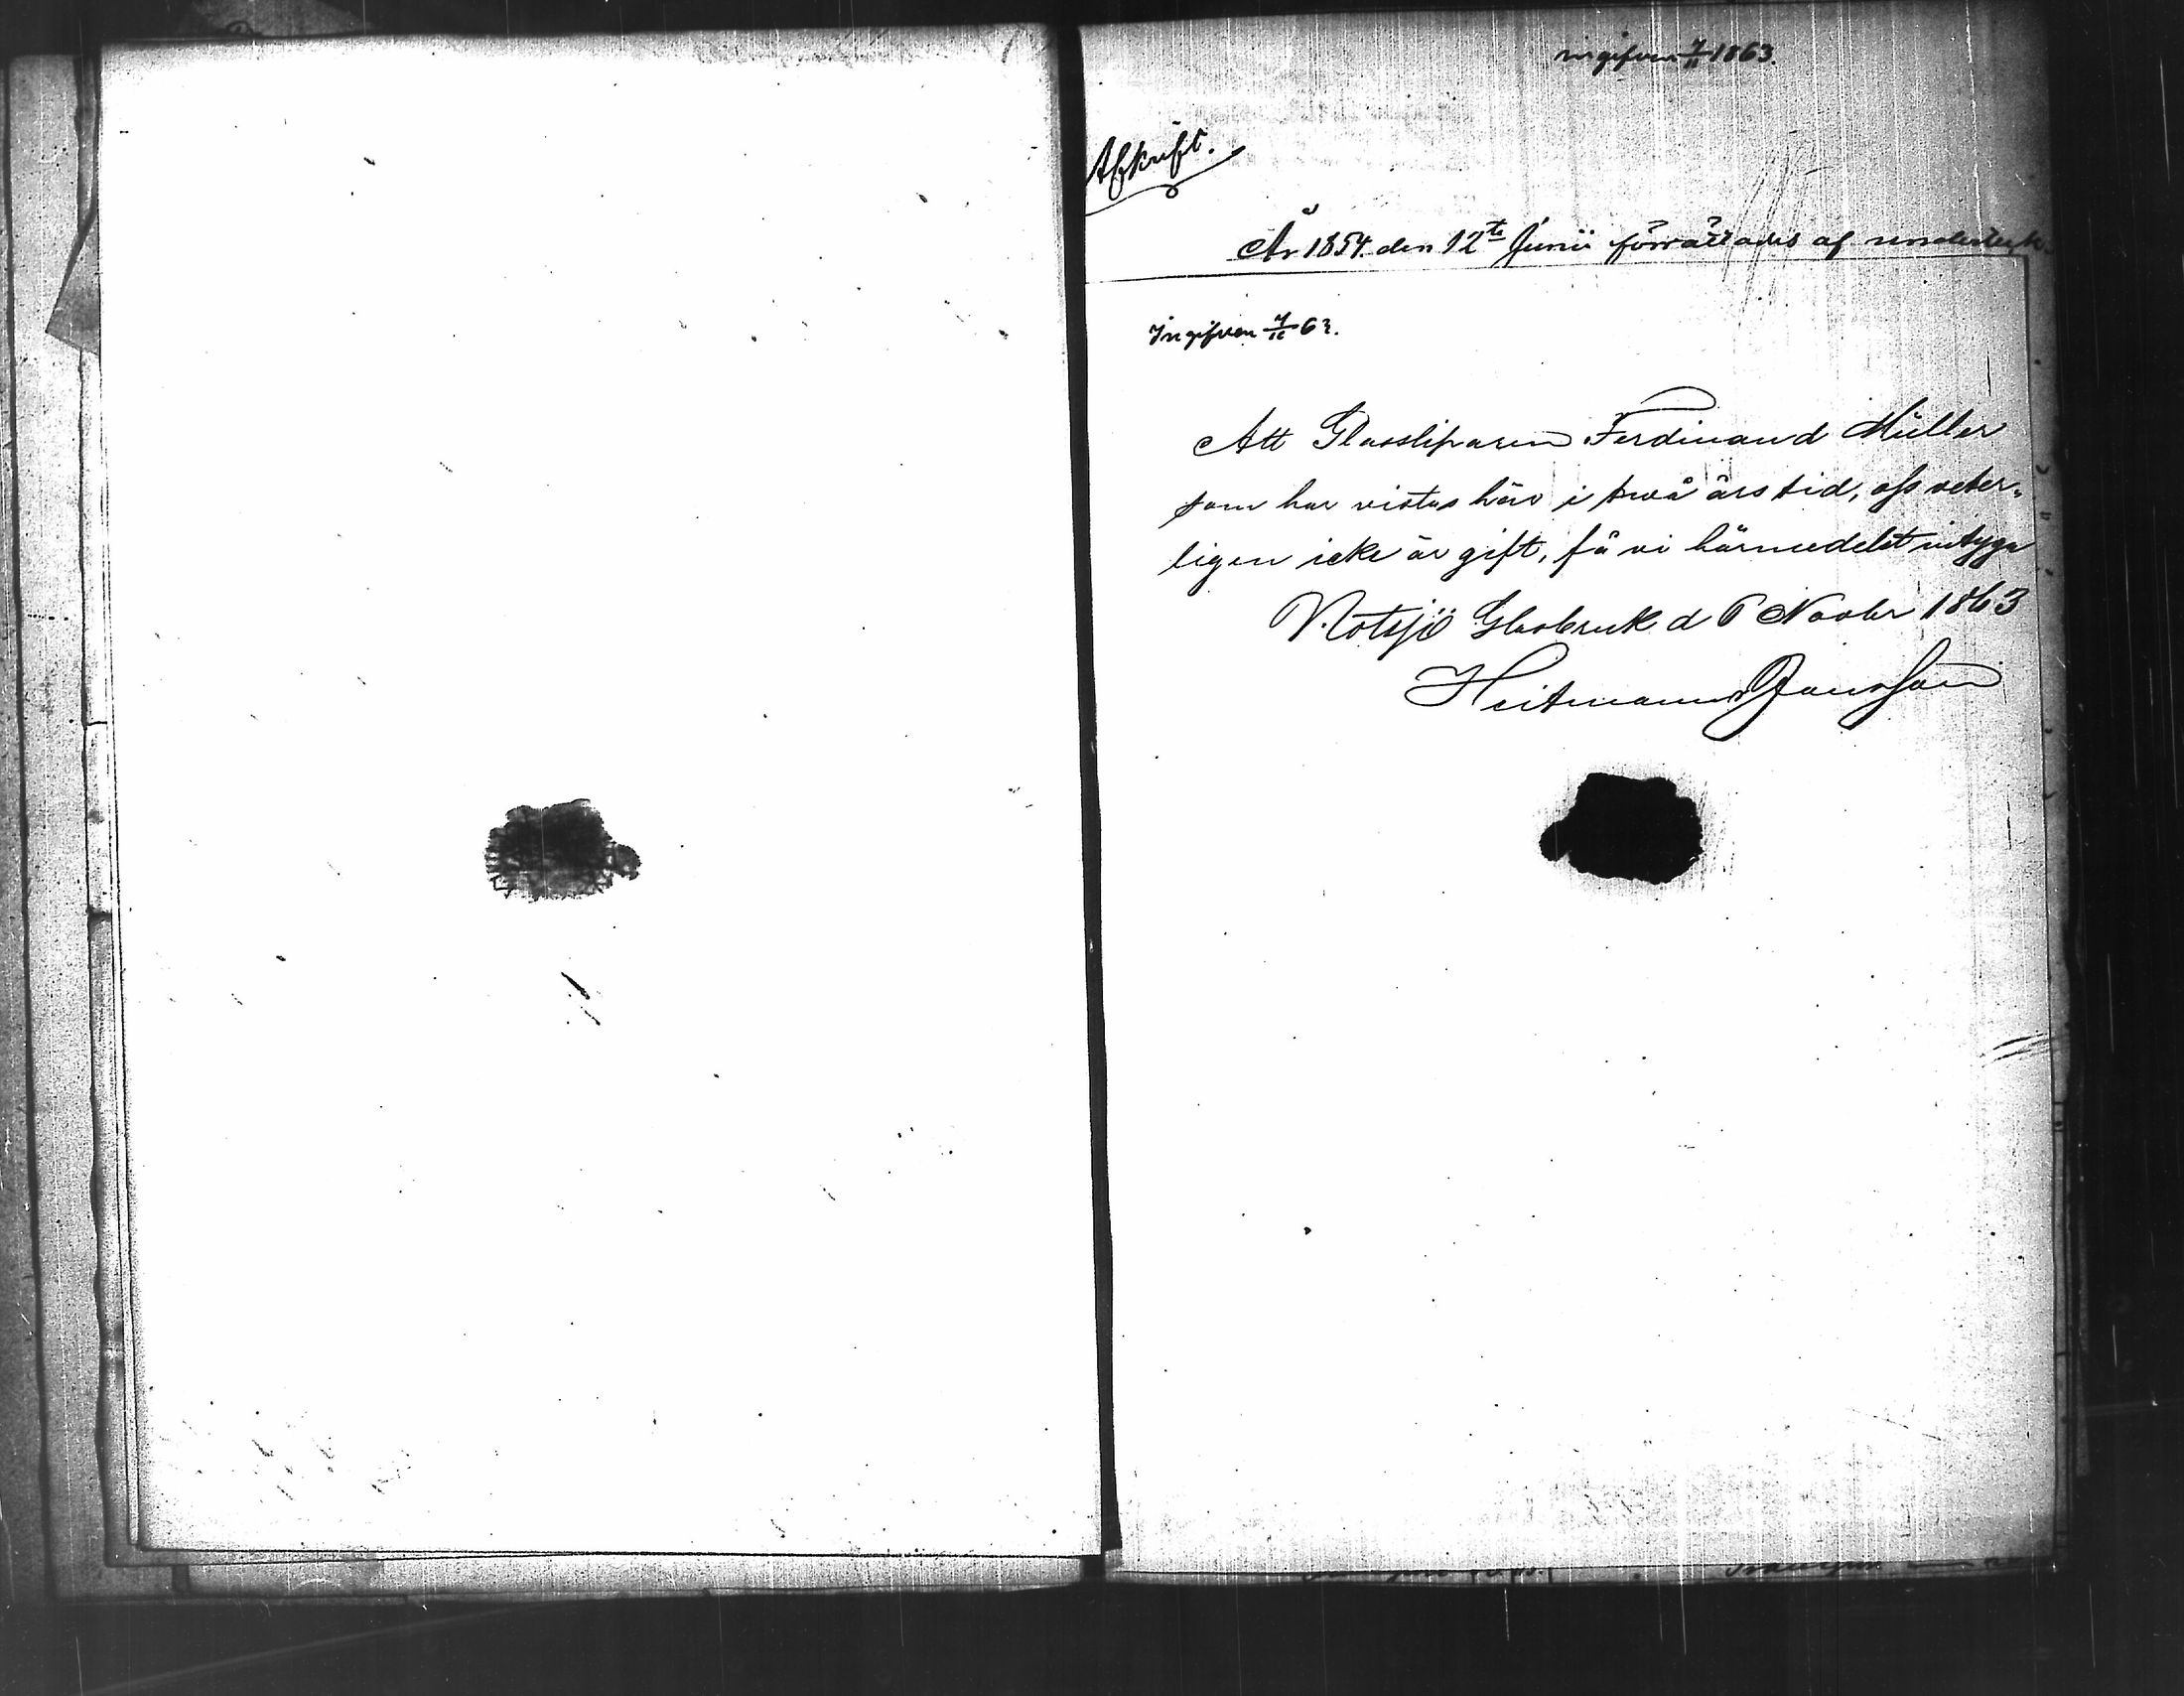 ingifven 7/11 1863.
Afskrift.
År 1854 den 12te Junii förrättades af undertekn
Ingifven 7/11 63.
Att Glassliparen Ferdinand Müller
som har vistas här i twå års tid, oss veter-
ligen icke är gift, få vi härmedelst intyga
Notsjö Glasbruk d 6 Novbr 1863
Heitmann & Jansson